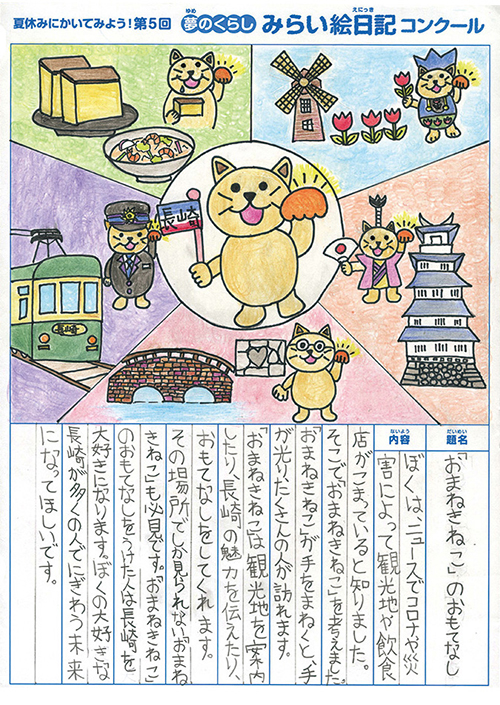 夏休みにかいてみよう!第5回 夢のくらし みらい絵日記コンクール
ゆめ
えにっき
長崎
長崎
だいめい
題名
「おまねきねこ」のおもてなし
ないよう
内容
ぼくは、ニュースでコロナや災
害によって観光地や飲食
店がこまっていると知りました。
そこで「おまねきねこ」を考えました。
「おまねきねこ」が手をまねくと、手
が光り、たくさんの人が訪れます。
「おまねきねこ」は観光地を案内
したり、長崎の魅力を伝えたり、
おもてなしをしてくれます。
その場所でしか見られない「おまね
きねこ」も必見です。「おまねきねこ」
のおもてなしをうけた人は長崎を
大好きになります。ぼくの大好きな
長崎が多くの人でにぎわう未来
になってほしいです。